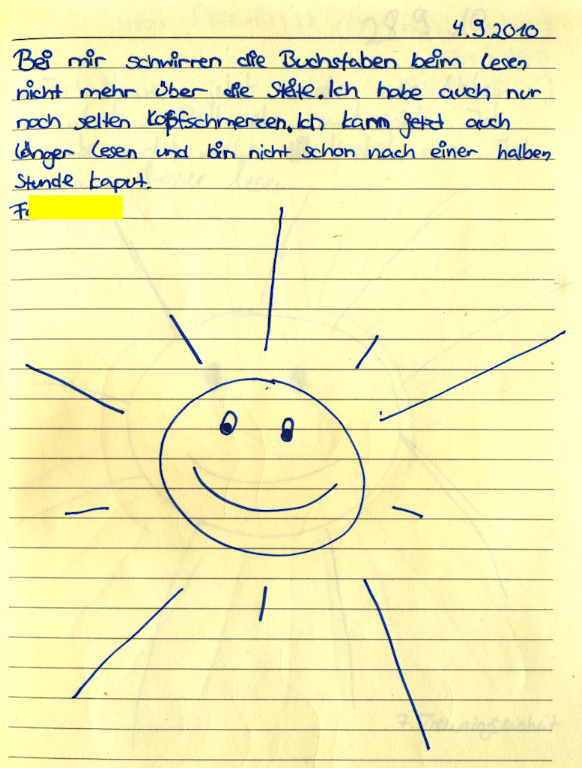 4.9.2010
Bei mir schwirren die Buchstaben beim lesen
nicht mehr über die Seite. Ich habe auch nur
noch selten Kopfschmerzen. Ich kann jetzt auch
länger lesen und bin nicht schon nach einer halben
Stunde kaput.